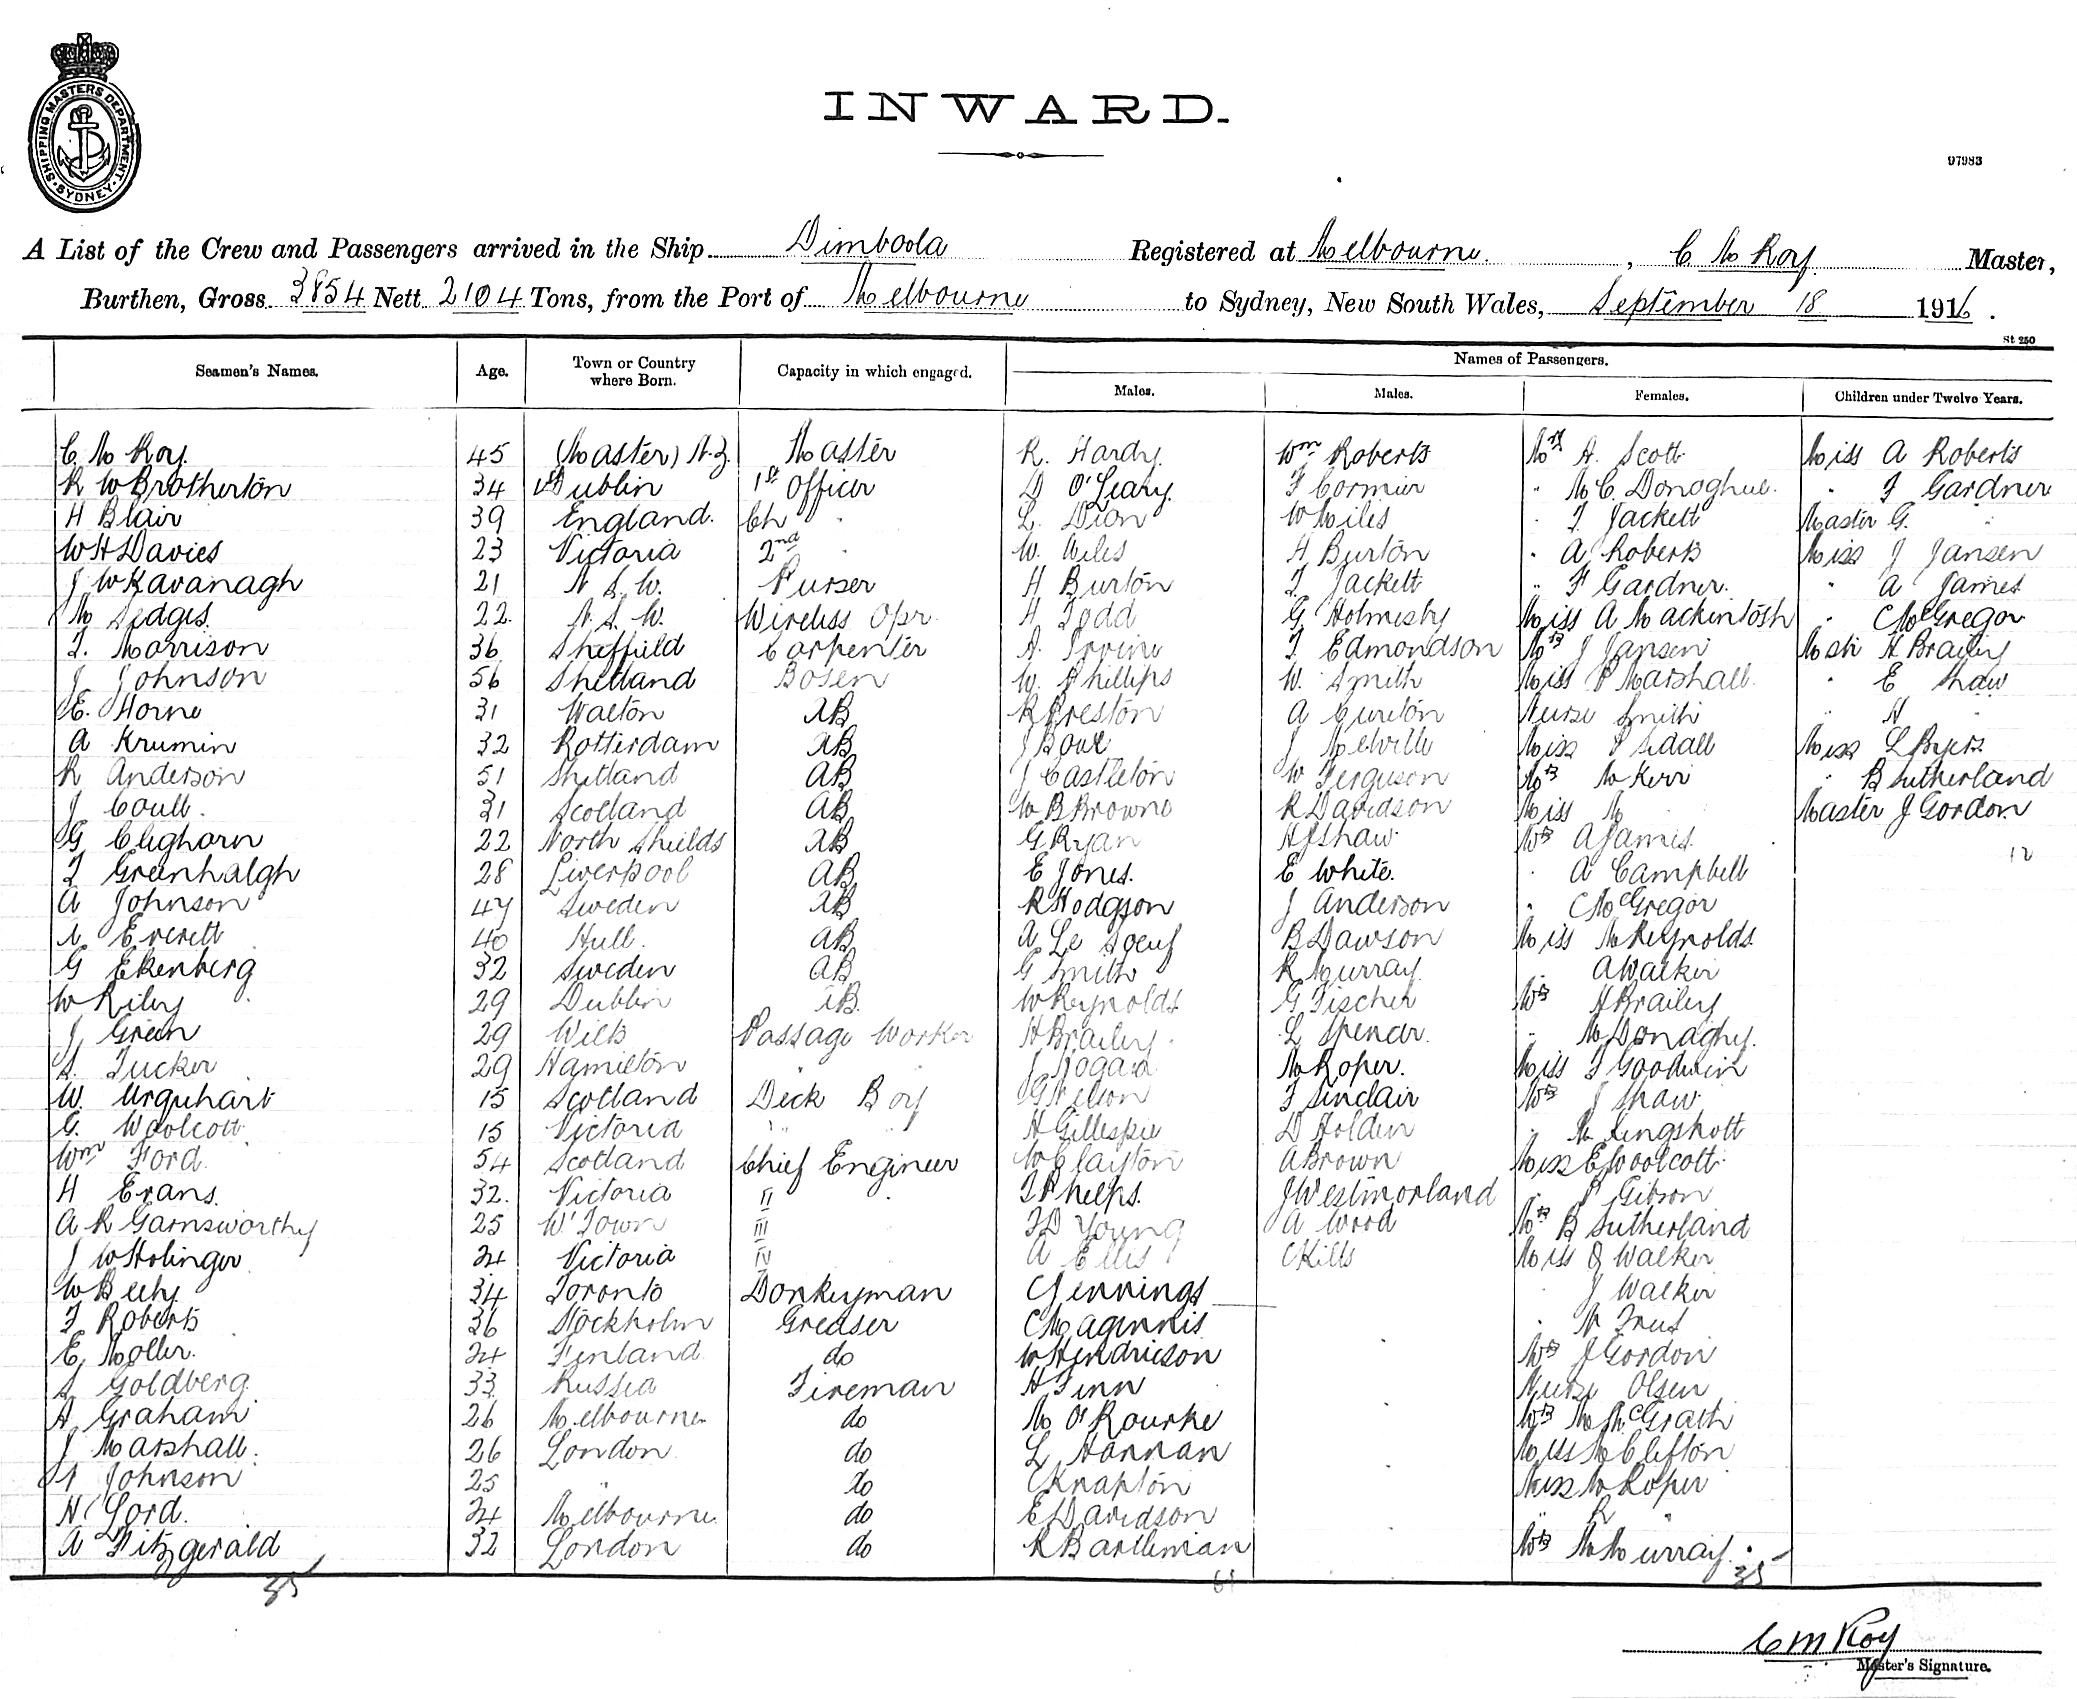 SHIPPING MASTERS DEPARTMENT. SYDNEY.
INWARD.
97983
A List of the Crew and Passengers arrived in the Ship Dimboola Registered at Melbourne, C M Roy Master,
Burthen, Gross 3854 Nett 2104 Tons, from the Port of Melbourne to Sydney, New South Wales, September 18 1916.
St 250
Seamen's Names. Age. Town or Country where Born. Capacity in which engaged. Names of Passengers.
Males. Males. Females. Children under Twelve Years.
C M Roy 45 (Master) N.Z. Master R. Hardy Wm Roberts Mrs A. Scott Miss A Roberts
R W Brotherton 34 Dublin 1st Officer D O'Leary F Cormier " M C. Donoghue " F Gardner
H Blair 39 England. Ch " L. Dion W Miles " F Jackett Master G. "
W H Davies 23 Victoria 2nd " W. Wiles H Burton " A Roberts Miss J Jansen
J W Kavanagh 21 N.S.W. Purser H Burton F Jackett " F Gardner " A James
M Sedgis 22 N.S.W. Wireless Opr H Todd G Holmesby Miss A Mackintosh " C McGregor
F. Morrison 36 Sheffield Carpenter A. Irvine F Edmondson Mrs J Jansen Mstr H Brailey
J Johnson 56 Shetland Bosen W. Phillips W. Smith Miss P Marshall " E Shaw
E. Horne 31 Walton AB R Preston A Cureton Nurse Smith " H "
A Krumin 32 Rotterdam AB J J Melville Miss P Sidall Miss L Byers
R Anderson 51 Shetland AB J Castleton W Ferguson Mrs M Kerr " B Sutherland
J Coull. 31 Scotland AB W B Browne R Davidson Miss M " Master J Gordon
G Cleghorn 22 North Shields AB G Ryan H J Shaw Mrs A James
12
T Greenhalgh 28 Liverpool AB E Jones. E White. " A Campbell
A Johnson 47 Sweden AB R Hodgson J Anderson " C McGregor
A Everett 40 Hull. AB A Le Soeuf B Dawson Miss M Reynolds
G Ekenberg 32 Sweden AB G Smith R Murray " A Walker
W Riley 29 Dublin AB. W Reynolds G Fischer Mrs H Brailey
J Green 29 Wilts Passage Worker H Brailey L Spencer. " M Donaghy.
S. Tucker 29 Hamilton J Hogan M Roper. Miss F Goodwin
W. Urquhart 15 Scotland Deck Boy G Nelson F Sinclair Mrs J Shaw
G. Woolcott 15 Victoria " " H Gillespie D Holden " M Kingshott
Wm Ford 54 Scotland Chief Engineer W Clayton A Brown Miss E Woolcott
H Evans. 32. Victoria II " T Phelps. J Westmorland " P Gibson
A R Garnsworthy 25 W'Town III F D Young A Wood Mrs B Sutherland
J W Holinger 24 Victoria IV A Ellis C Kills Miss O Walker
W Beeby 34 Toronto Donkeyman C Jennings " J Walker
F Roberts 36 Stockholm Greaser C Maginnis
E Moller. 24 Finland do W Hendricson Mrs J Gordon
S Goldberg 33 Russia Fireman H Finn Nurse Olsen
A Graham 26 Melbourne do M O'Rourke Mrs M McGrath
J Marshall. 26 London do L Hannan Miss M Clifton
A Johnson 25 " do C Knapton Miss M Roper
H C Lord. 24 Melbourne do E Davidson " R "
A Fitzgerald 32 London do R Bartleman Mrs M Murray.
35 61 35
C M Roy
Master's Signature.